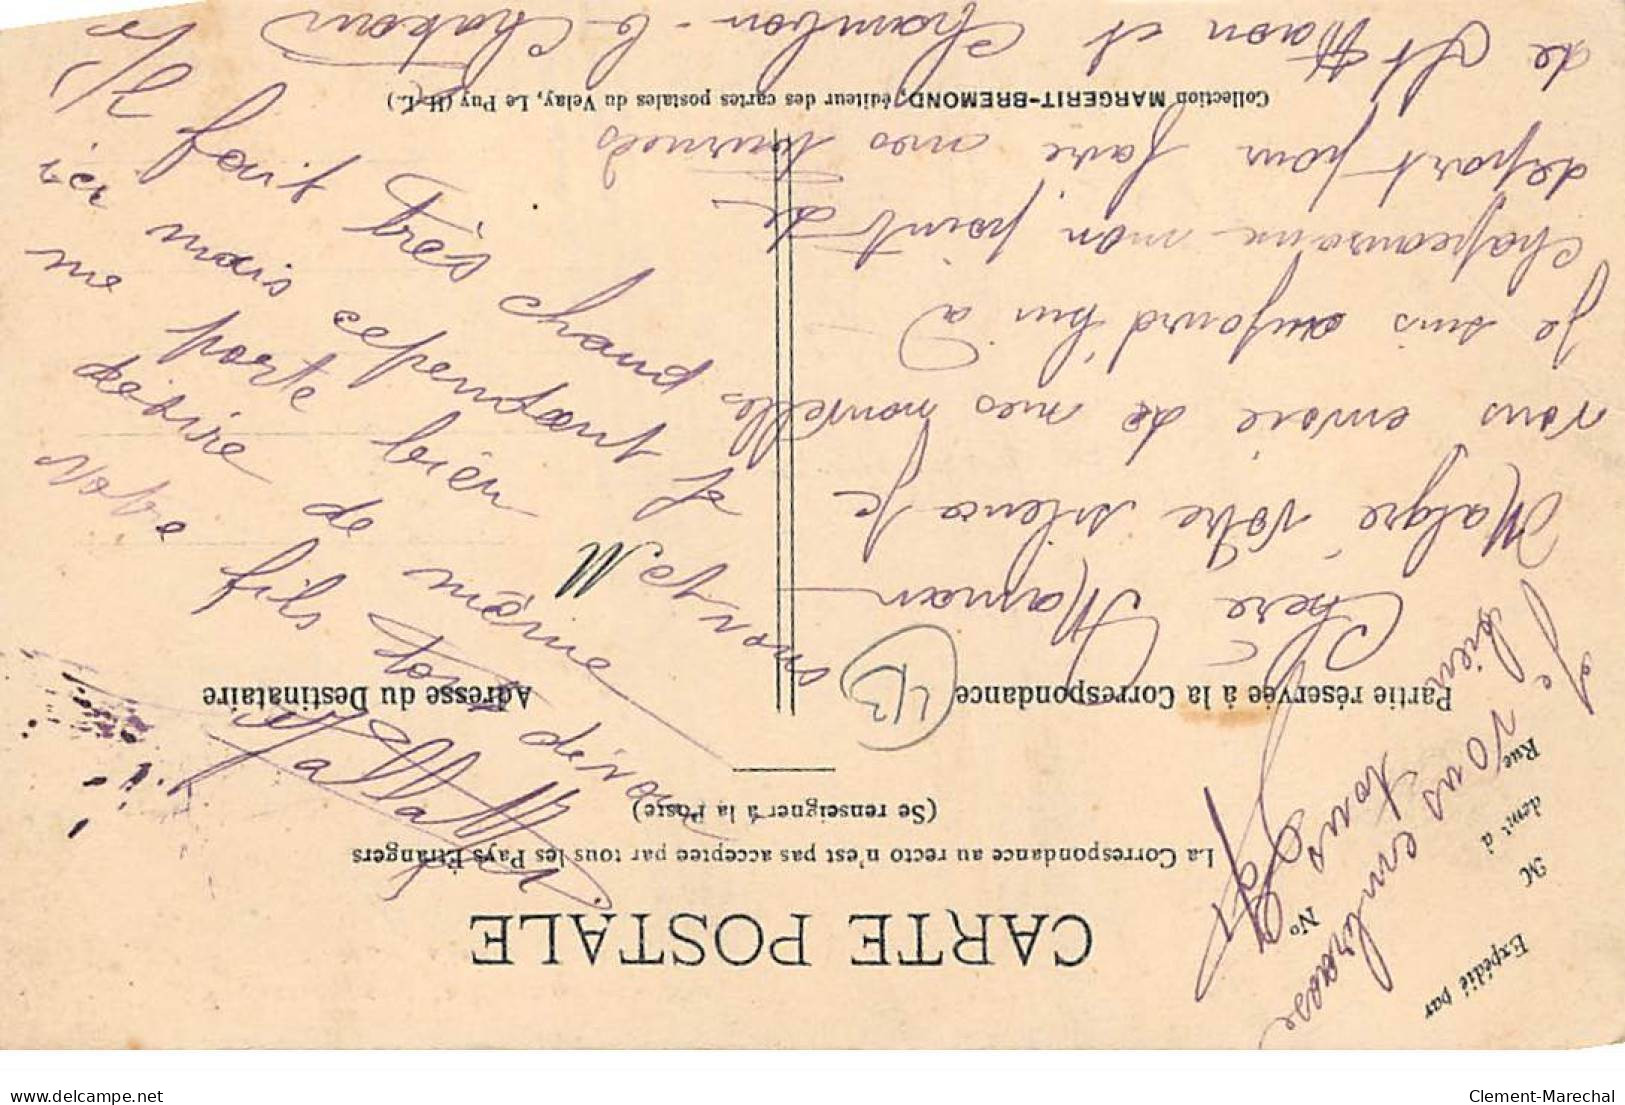 CARTE POSTALE
La Correspondance au recto n'est pas acceptée par tous les Pays Étrangers
(Se renseigner à la Poste)
Expédié par
M
demt à
Rue
No
Partie réservée à la Correspondance
Adresse du Destinataire
43
Chère Maman
Malgré vôtre silence je
vous envoie de mes nouvelles
Je suis aujourd'hui à
mon point de
départ pour faire mes tournées
Collection MARGERIT-BREMOND, éditeur des cartes postales du Velay, Le Puy (H-L.)
de St Haon et Chambon-le Chateau
Il fait très chaud
ici mais cependant je
me porte bien
désire de même
Votre fils tout dévoué
Je vous embrasse
bien
tous
M
Clement-Marechal
delcampe.net